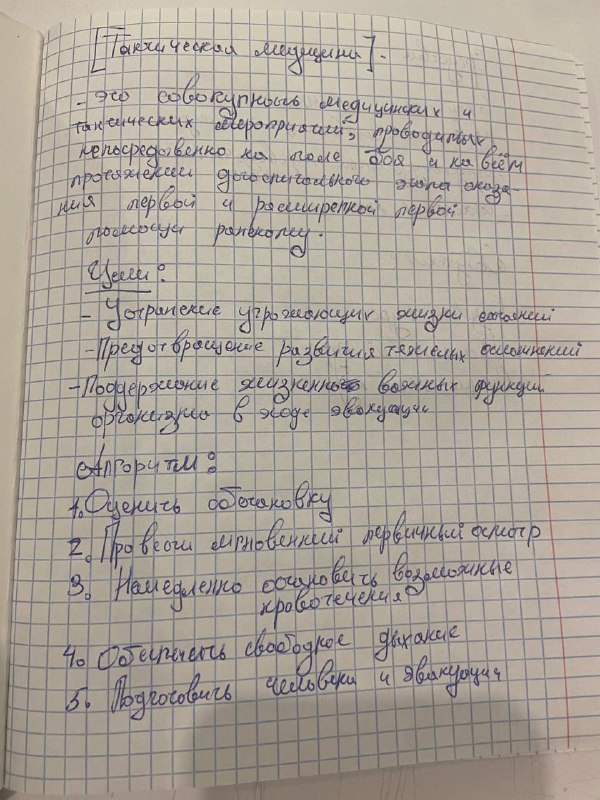 [Тактическая медицина].
- это совокупность медицинских и
тактических мероприятий, проводимых
непосредственно на поле боя и на всём
протяжении догоспитального этапа оказа-
ния первой и расширенной первой
помощи раненому.
Цели:
- Устранение угрожающих жизни состояний
- Предотвращение развития тяжелых осложнений
- Поддержание жизненно важных функций
организма в ходе эвакуации
Алгоритм:
1. Оценить обстановку
2. Провести мгновенный первичный осмотр
3. Немедленно остановить возможные
кровотечения
4. Обеспечить свободное дыхание
5. Подготовить человека к эвакуации